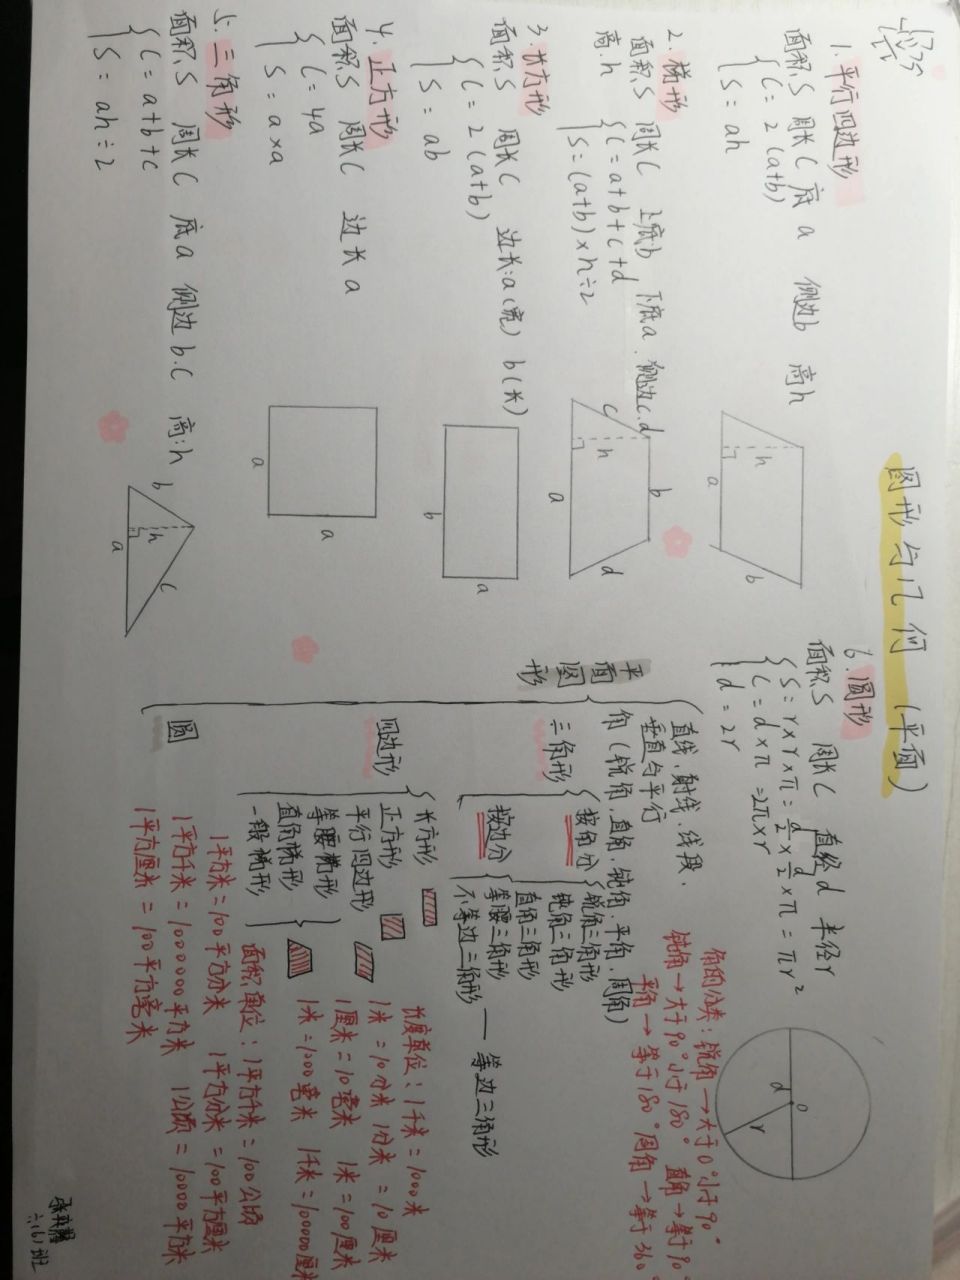 图形与几何（平面）
1.平行四边形
面积S 周长C 底a 侧边b 高h
C=2(a+b)
S=ah
h
a
b
2.梯形
面积S 周长C 上底b 下底a. 侧边c.d
高:h
C=a+b+c+d
S=(a+b)×h÷2
c
h
b
a
d
3.长方形
面积S 周长C 边长:a(宽) b(长)
C=2(a+b)
S=ab
b
a
4.正方形
面积S 周长C 边长a
C=4a
S=a×a
a
a
5.三角形
面积S 周长C 底a 侧边b.c 高:h
C=a+b+c
S=ah÷2
b
h
a
c
6.圆形
面积S 周长C 直径d 半径r
S=r×r×π=d/2×d/2×π=πr²
C=d×π=2π×r
d=2r
d
o
r
平面图形
直线、射线、线段、
垂直与平行
角(锐角、直角、钝角、平角、周角)
三角形
按角分
锐角三角形
钝角三角形
直角三角形
按边分
等腰三角形——等边三角形
不等边三角形
四边形
长方形
正方形
平行四边形
等腰梯形
直角梯形
一般梯形
圆
角的分类：锐角→大于0°小于90°
钝角→大于90°小于180° 直角→等于90°
平角→等于180° 周角→等于360°
长度单位：1千米=1000米
1米=10分米 1分米=10厘米
1厘米=10毫米 1米=100厘米
1米=1000毫米 1千米=100000厘米
面积单位：1平方千米=100公顷
1平方米=100平方分米 1平方分米=100平方厘米
1平方千米=1000000平方米 1公顷=10000平方米
1平方厘米=100平方毫米
六(6)班